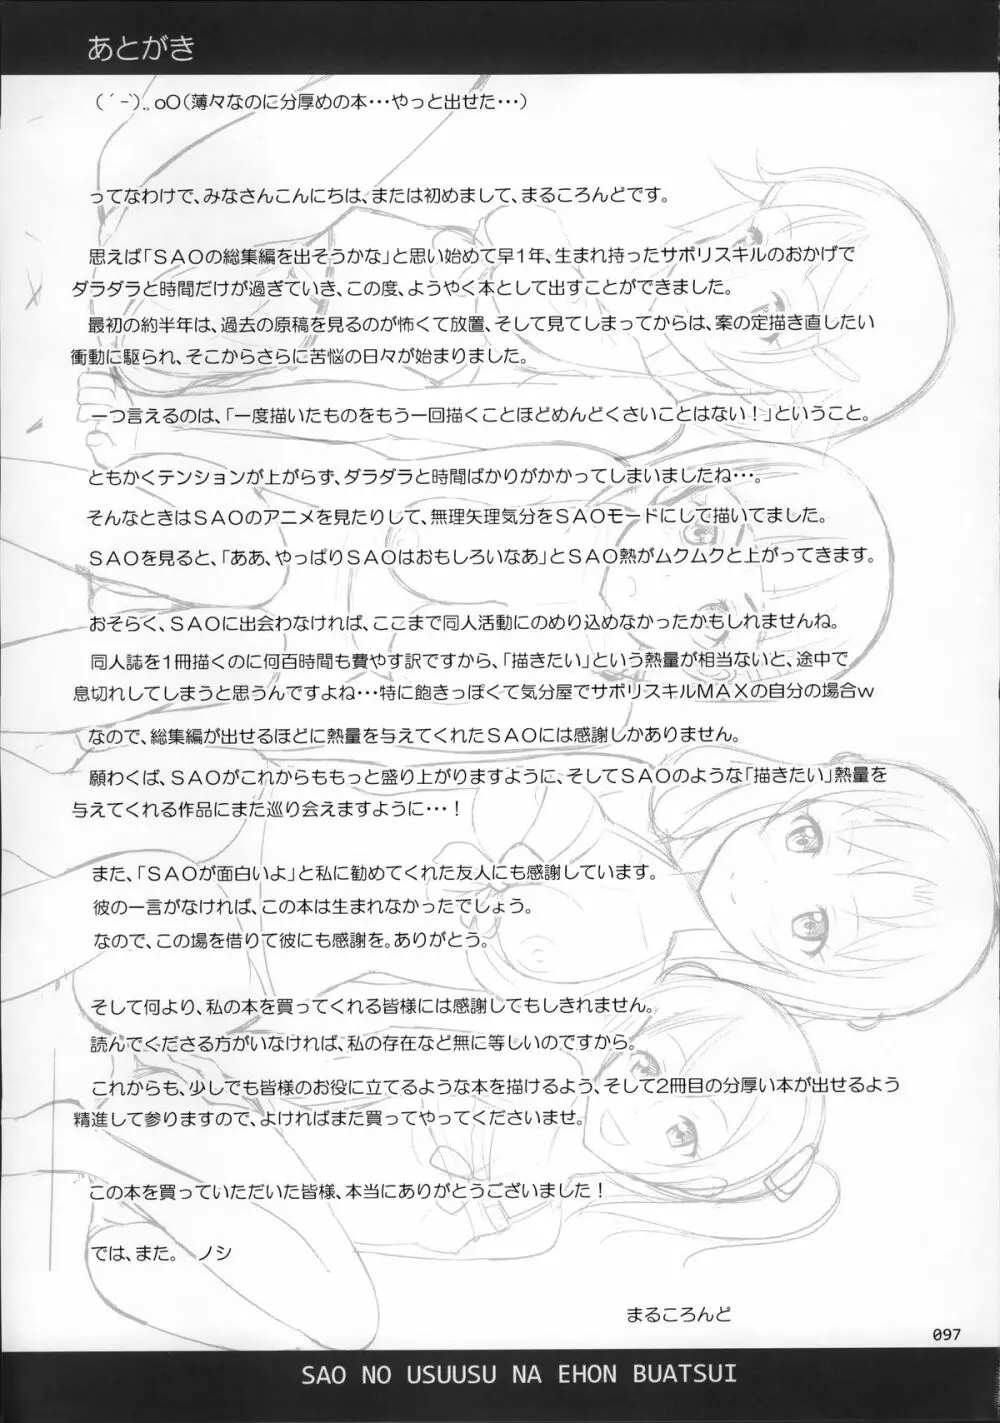 あとがき
（´-`）.｡oO（薄々なのに分厚めの本･･･やっと出せた･･･）
ってなわけで、みなさんこんにちは、または初めまして、まるころんどです。
思えば「ＳＡＯの総集編を出そうかな」と思い始めて早１年、生まれ持ったサボリスキルのおかげで
ダラダラと時間だけが過ぎていき、この度、ようやく本として出すことができました。
最初の約半年は、過去の原稿を見るのが怖くて放置、そして見てしまってからは、案の定描き直したい
衝動に駆られ、そこからさらに苦悩の日々が始まりました。
一つ言えるのは、「一度描いたものをもう一回描くことほどめんどくさいことはない！」ということ。
ともかくテンションが上がらず、ダラダラと時間ばかりがかかってしまいましたね･･･。
そんなときはＳＡＯのアニメを見たりして、無理矢理気分をＳＡＯモードにして描いてました。
ＳＡＯを見ると、「ああ、やっぱりＳＡＯはおもしろいなあ」とＳＡＯ熱がムクムクと上がってきます。
おそらく、ＳＡＯに出会わなければ、ここまで同人活動にのめり込めなかったかもしれませんね。
同人誌を１冊描くのに何百時間も費やす訳ですから、「描きたい」という熱量が相当ないと、途中で
息切れしてしまうと思うんですよね･･･特に飽きっぽくて気分屋でサボリスキルＭＡＸの自分の場合ｗ
なので、総集編が出せるほどに熱量を与えてくれたＳＡＯには感謝しかありません。
願わくば、ＳＡＯがこれからももっと盛り上がりますように、そしてＳＡＯのような「描きたい」熱量を
与えてくれる作品にまた巡り会えますように･･･！
また、「ＳＡＯが面白いよ」と私に勧めてくれた友人にも感謝しています。
彼の一言がなければ、この本は生まれなかったでしょう。
なので、この場を借りて彼にも感謝を。ありがとう。
そして何より、私の本を買ってくれる皆様には感謝してもしきれません。
読んでくださる方がいなければ、私の存在など無に等しいのですから。
これからも、少しでも皆様のお役に立てるような本を描けるよう、そして２冊目の分厚い本が出せるよう
精進して参りますので、よければまた買ってやってくださいませ。
この本を買っていただいた皆様、本当にありがとうございました！
では、また。　ノシ
まるころんど
097
SAO NO USUUSU NA EHON BUATSUI